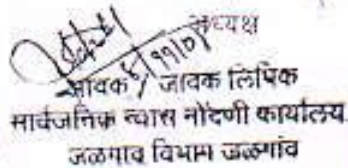 अध्यक्ष
आवक / जावक लिपिक
सार्वजनिक न्यास नोंदणी कार्यालय
जळगाव विभाग जळगांव